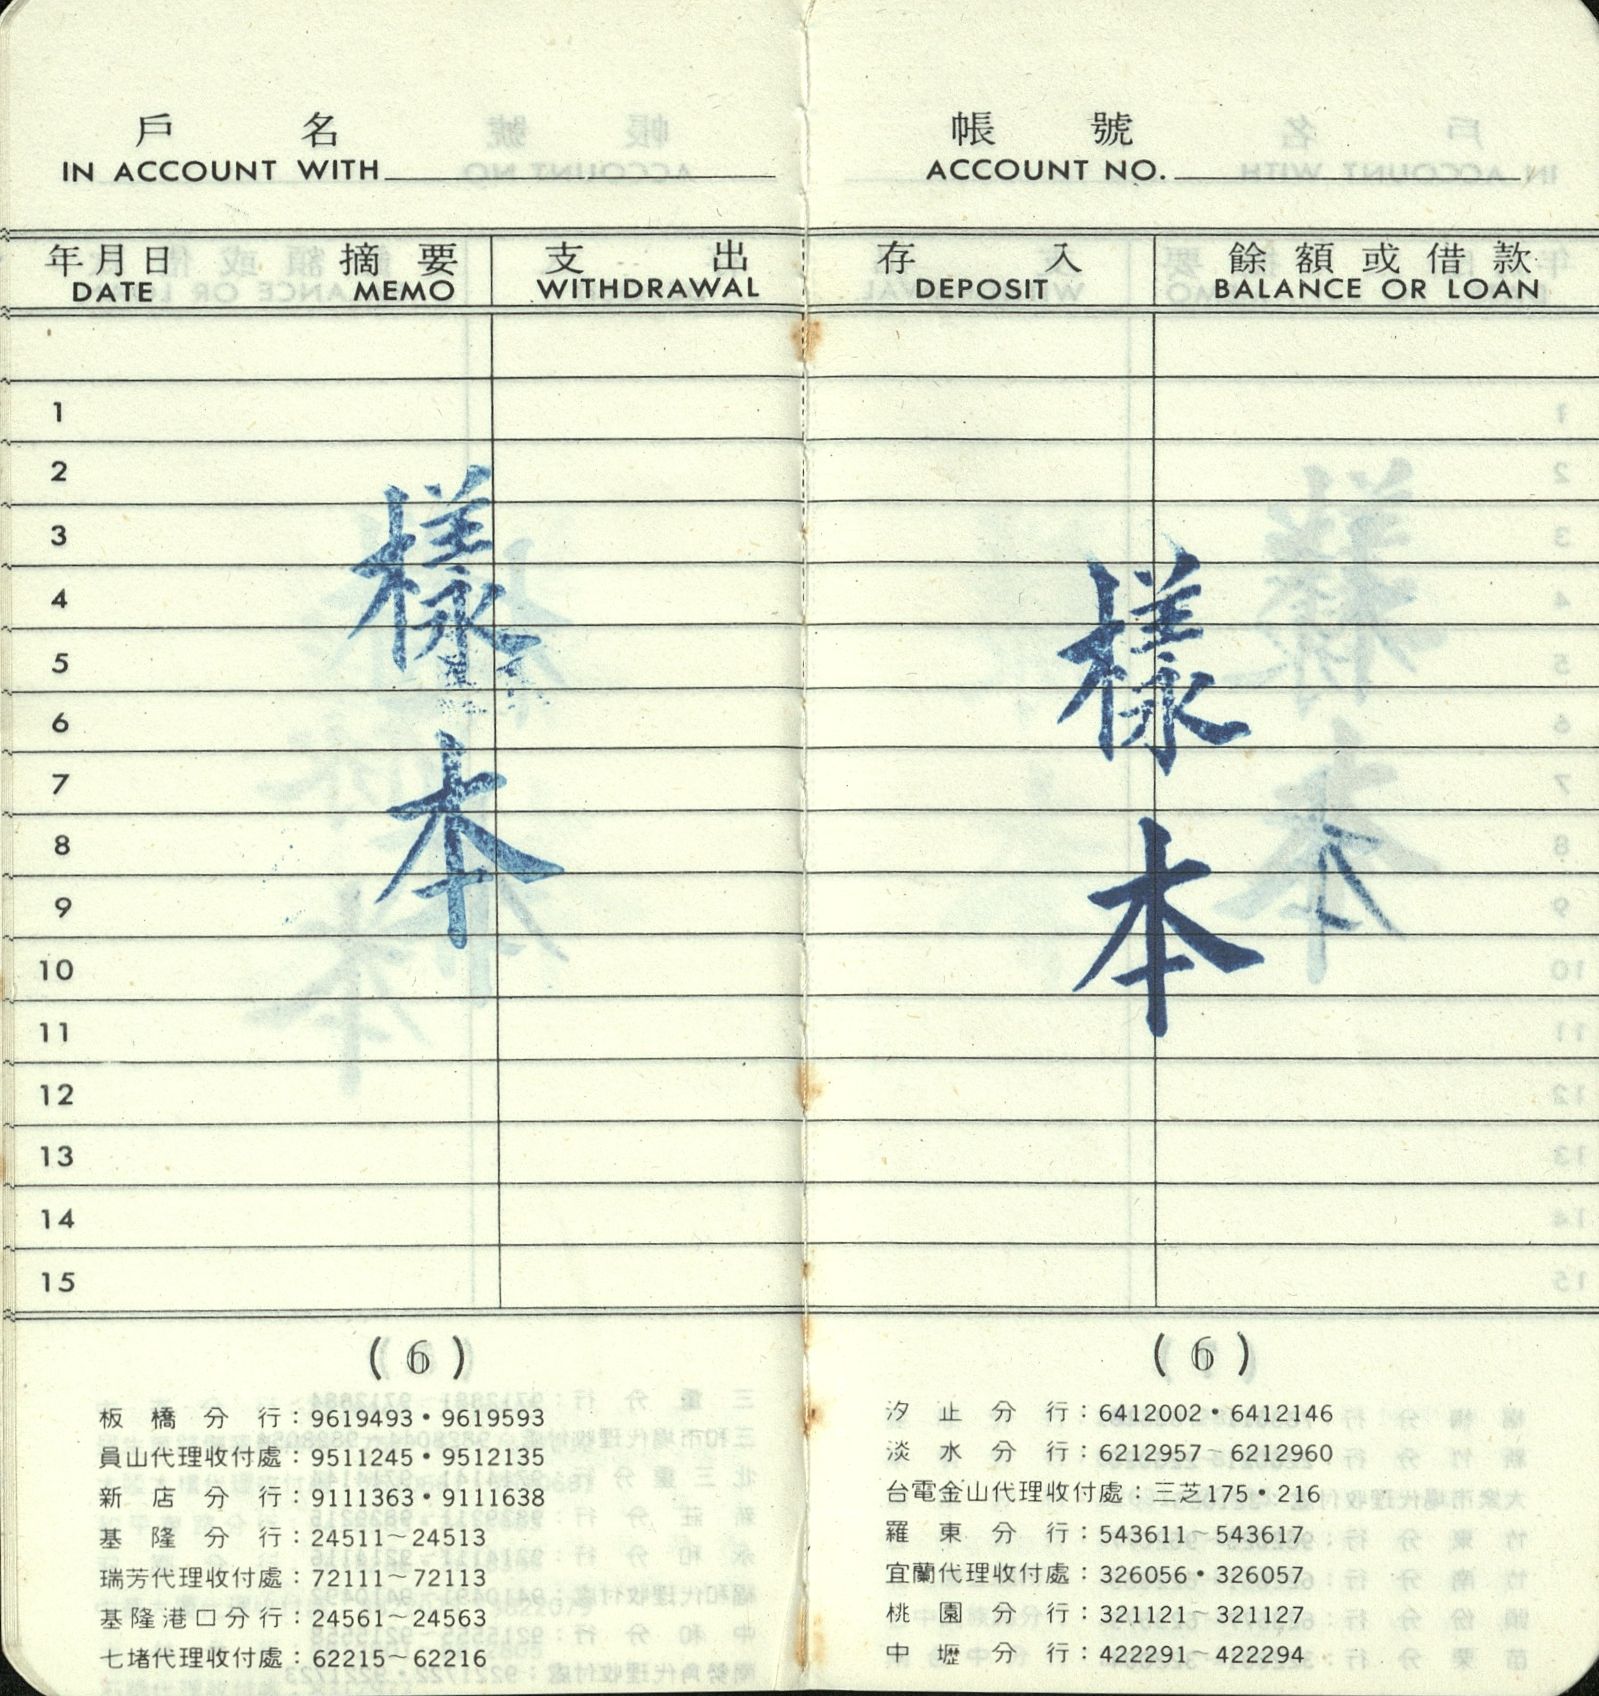 戶 名
IN ACCOUNT WITH
年月日 摘要 支出
DATE MEMO WITHDRAWAL
1
2
3
4
5
6
7
8
9
10
11
12
13
14
15
樣本
(6)
板橋分行：9619493・9619593
員山代理收付處：9511245・9512135
新店分行：9111363・9111638
基隆分行：24511～24513
瑞芳代理收付處：72111～72113
基隆港口分行：24561～24563
七堵代理收付處：62215～62216
帳 號
ACCOUNT NO.
存入 餘額或借款
DEPOSIT BALANCE OR LOAN
樣本
(6)
汐止分行：6412002・6412146
淡水分行：6212957～6212960
台電金山代理收付處：三芝175・216
羅東分行：543611～543617
宜蘭代理收付處：326056・326057
桃園分行：321121～321127
中壢分行：422291～422294